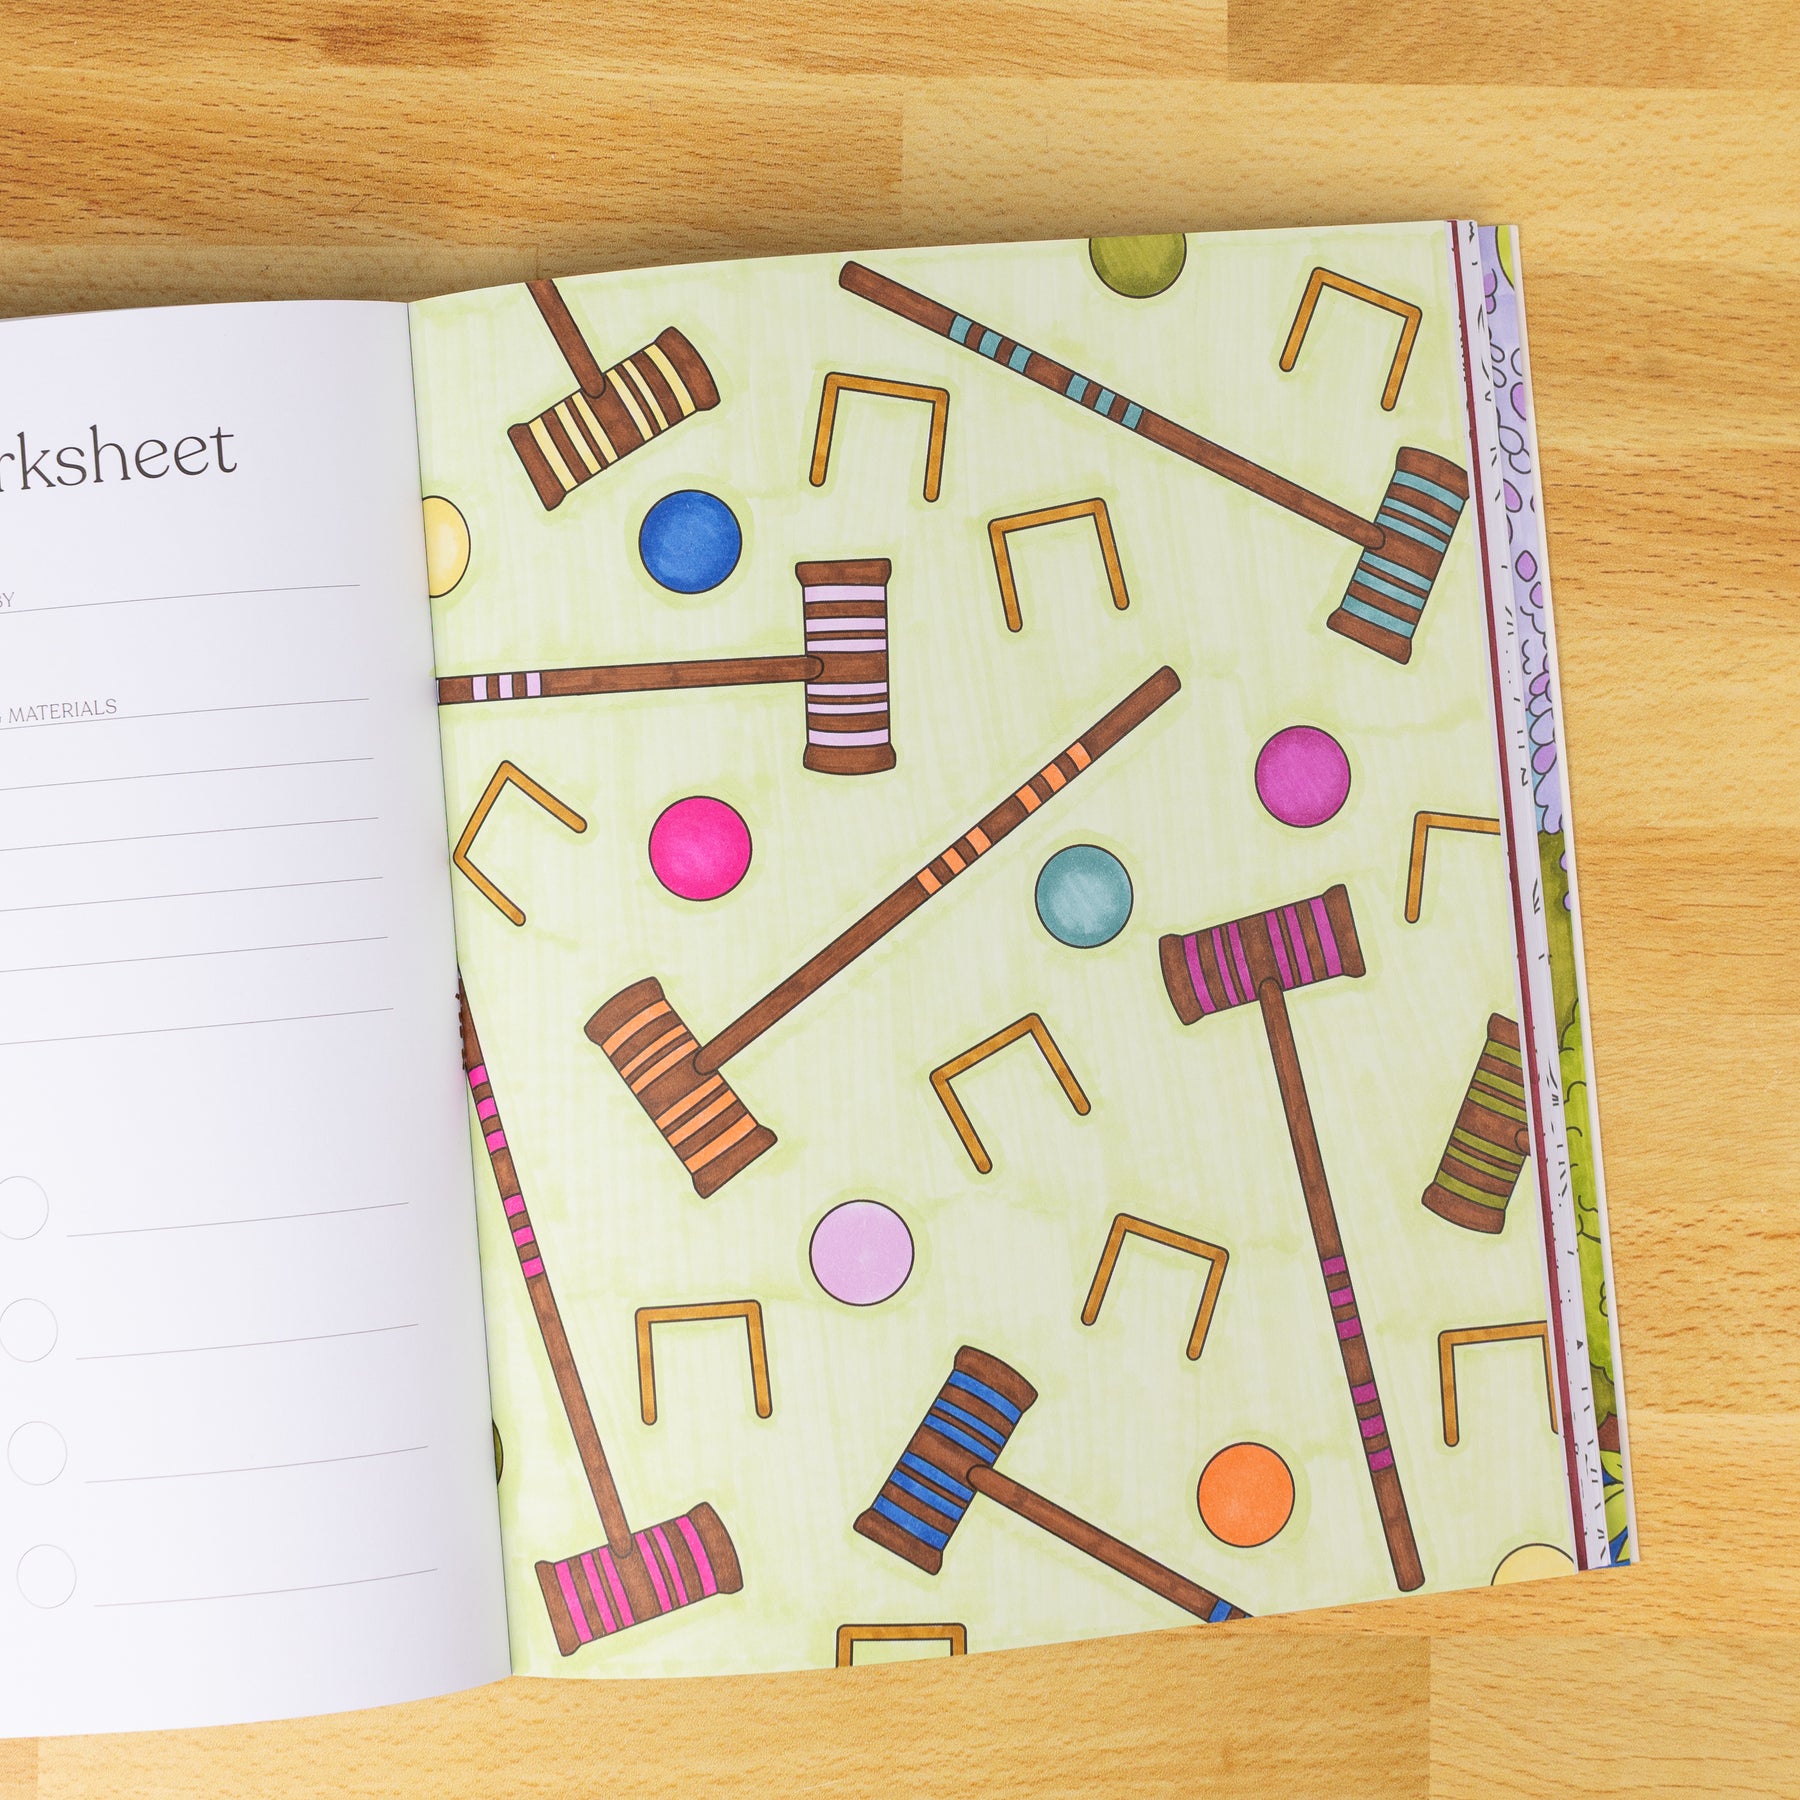 rksheet
BY
G MATERIALS